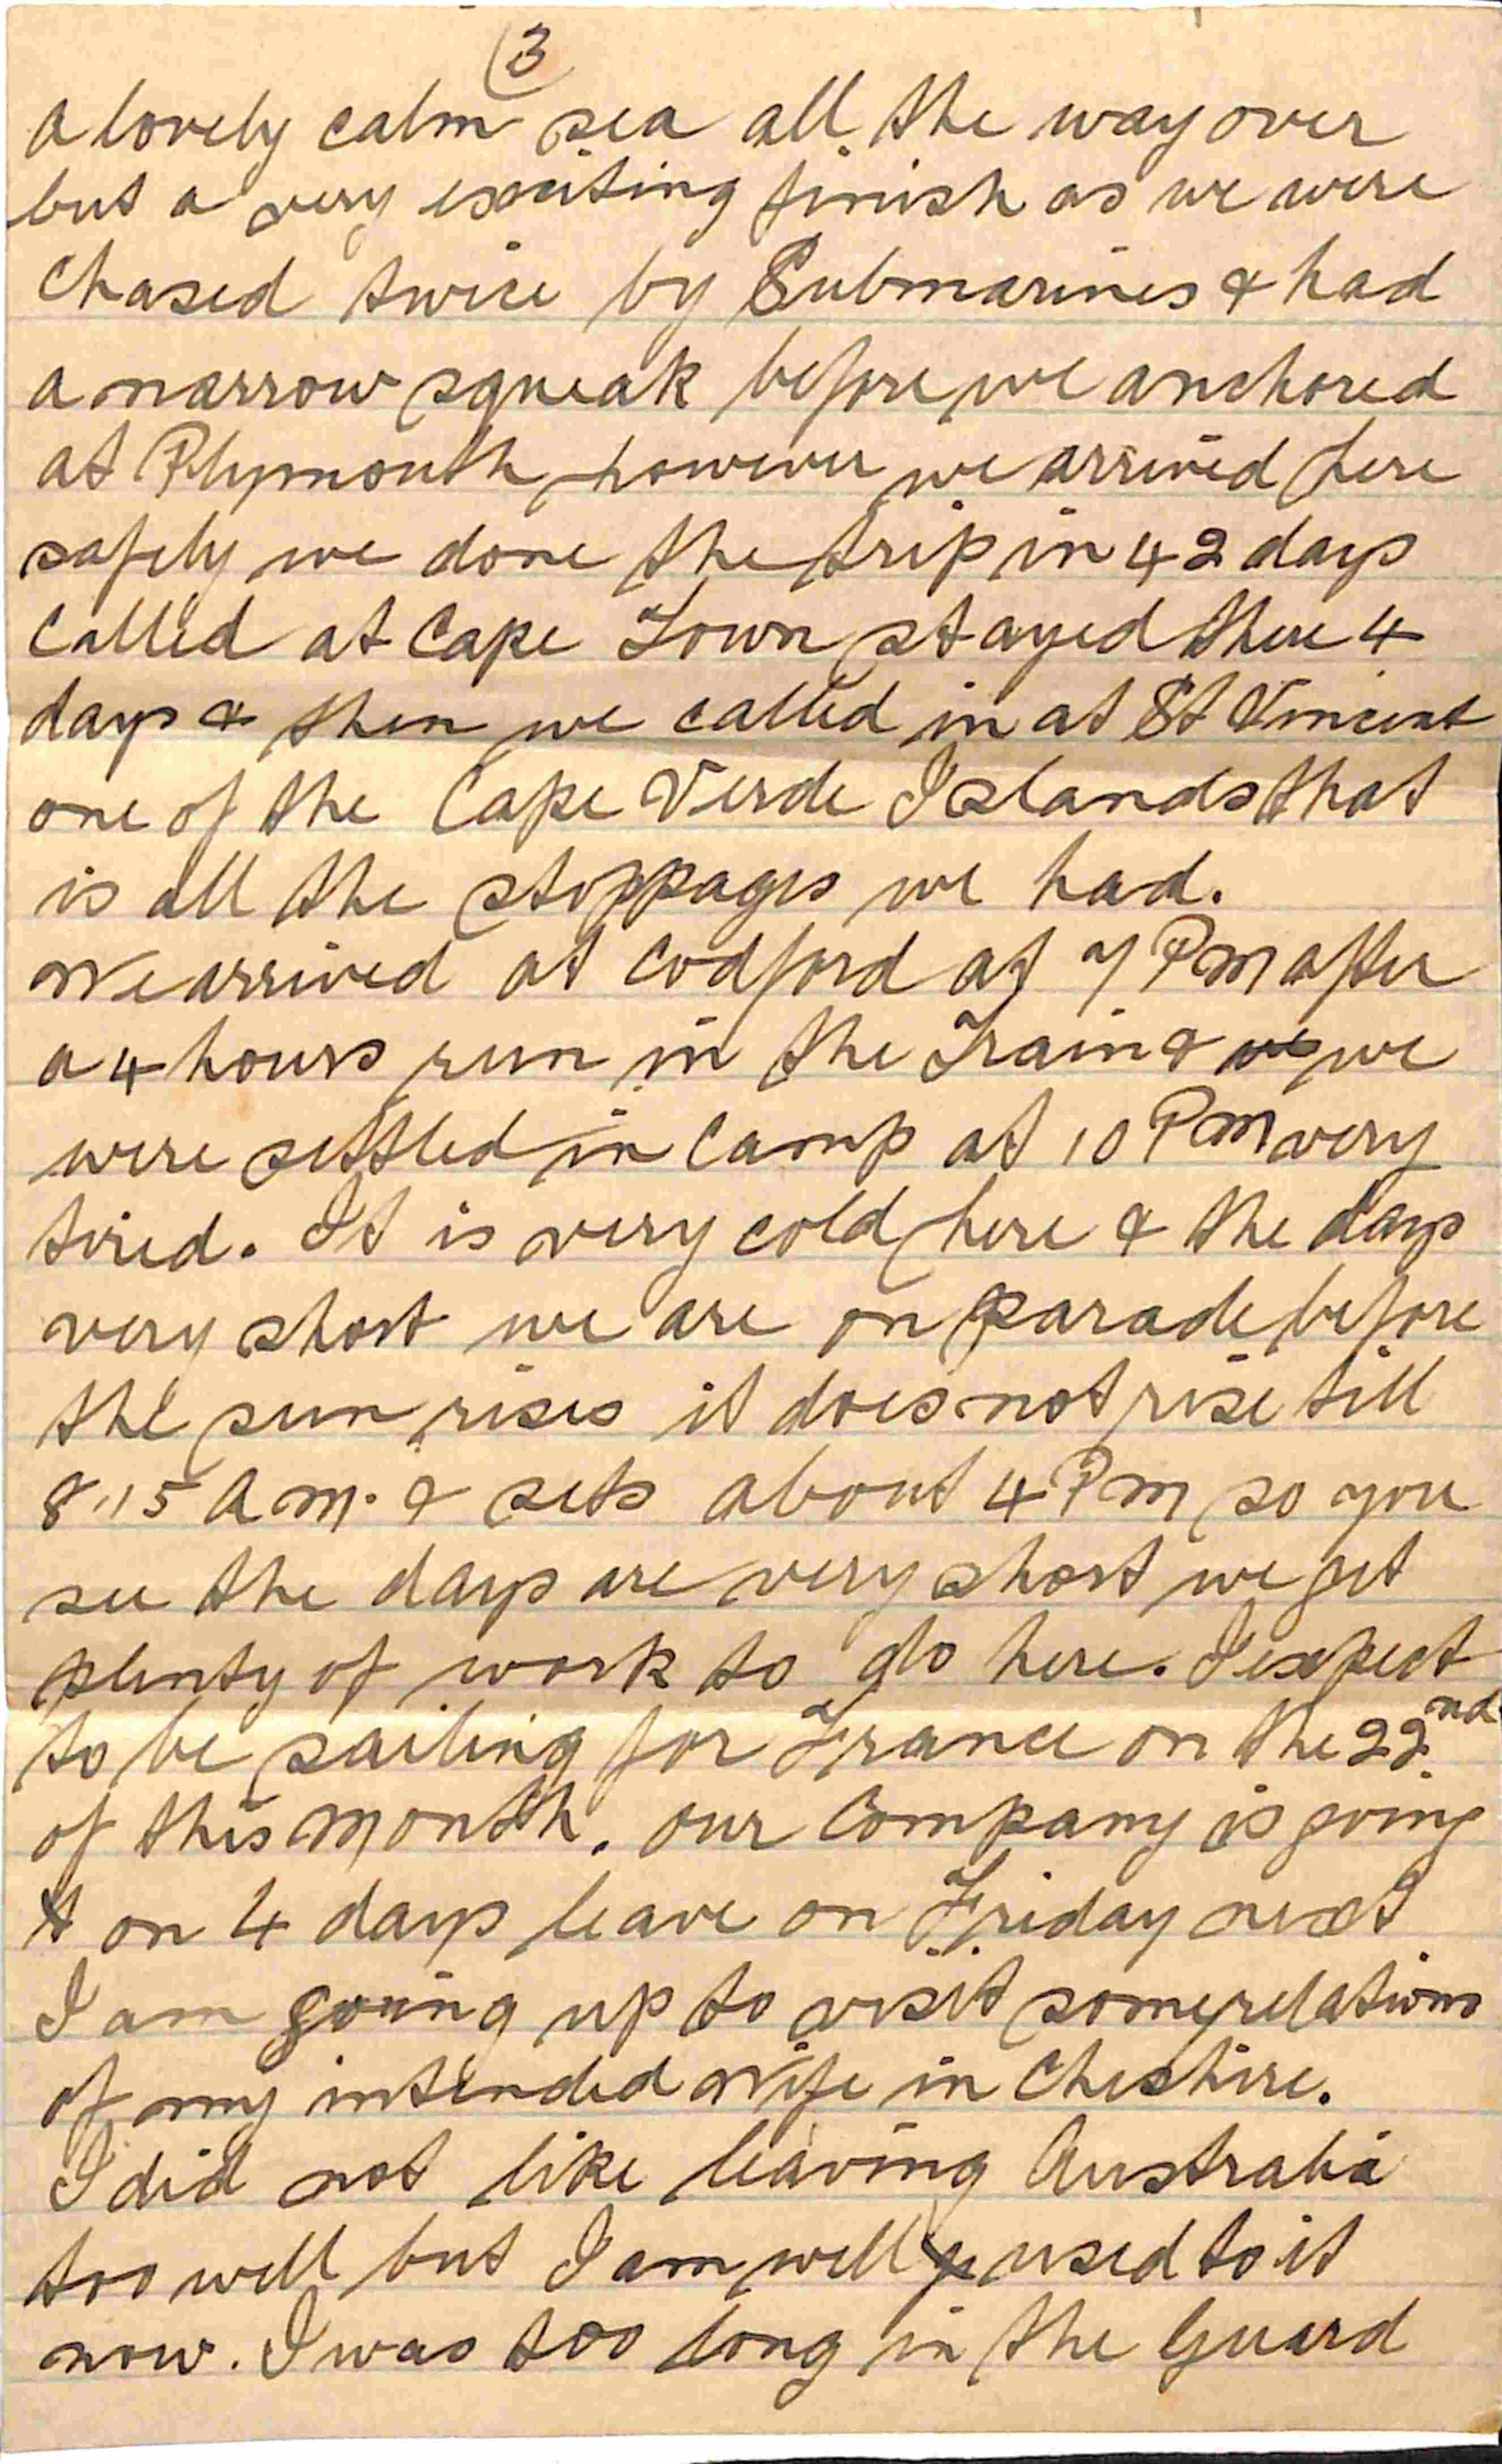 (3
a lovely calm sea all the way over
but a very exciting finish as we were
Chased twice by Submarines & had
a narrow squeak before we anchored
at Plymouth, however we arrived here
safely we done the trip in 42 days
Called at Cape Town stayed there 4
days & then we called in at St Vincent
one of the Cape Verde Islands that
is all the stoppages we had.
We arrived at Codford at 7 Pm after
a 4 hours run in the Train & we we
were settled in Camp at 10 Pm very
tired. It is very cold here & the days
very short we are on parade before
the sun rises it does not rise till
8.15 Am. & sets about 4 Pm so you
see the days are very short we get
plenty of work to do here. I expect
to be sailing for France on the 22nd
of this Month. our Company is going
t on 4 days leave on Friday next
I am going up to visit some relations
of my intended Wife in Cheshire.
I did not like leaving Australia
too well but I am well used to it
now. I was too long in the Guard